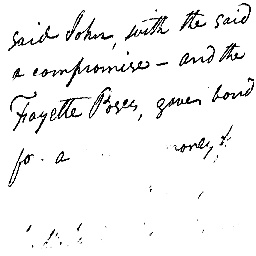 said John, with the said
a compromise - and the
Fayette Posey, gave bond
for a money &